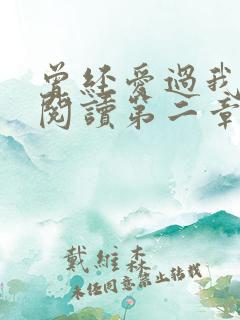 曾經愛過我
閱讀第二章
戴維森
未經同意禁止轉載